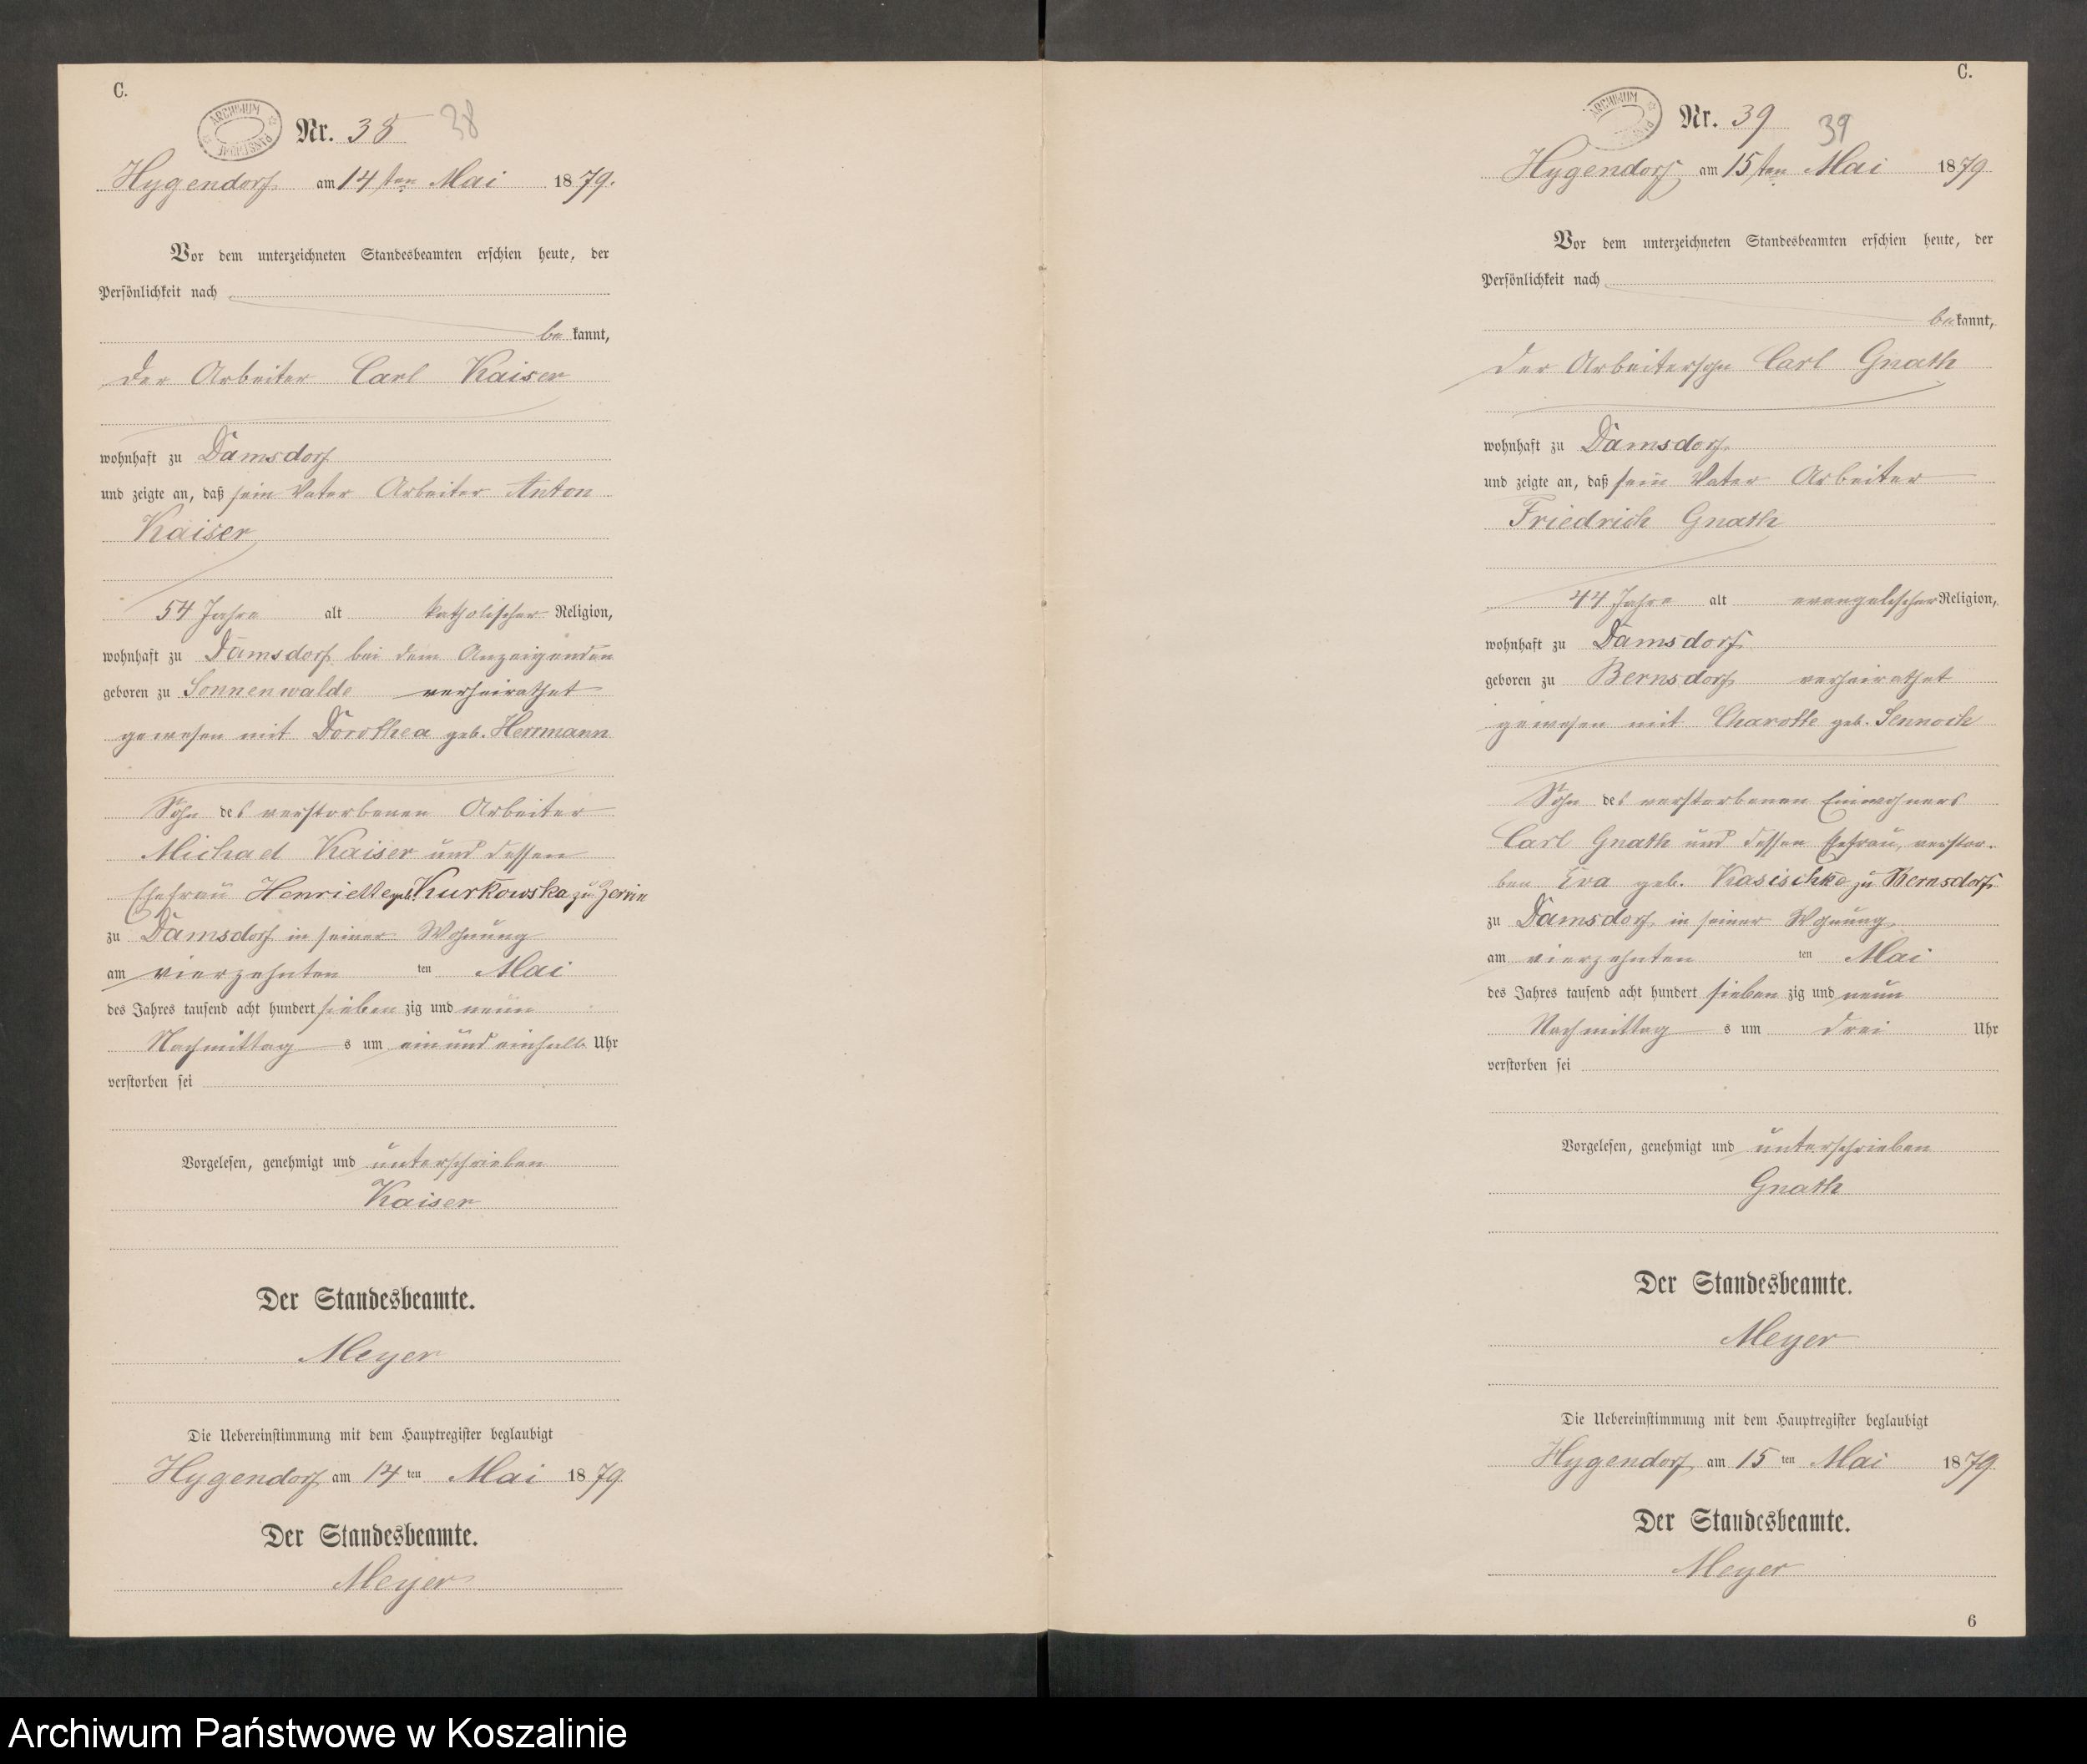 C.
ARCHIWUM PAŃSTWOWE
Nr. 38 38
Hygendorf am 14ten Mai 1879.
Vor dem unterzeichneten Standesbeamten erschien heute, der
Persönlichkeit nach
be kannt,
der Arbeiter Carl Kaiser
wohnhaft zu Damsdorf
und zeigte an, daß sein Vater Arbeiter Anton
Kaiser
54 Jahre alt katholischer Religion,
wohnhaft zu Damsdorf bei dem Anzeigenden
geboren zu Sonnenwalde verheirathet
gewesen mit Dorothea geb. Herrmann
Sohn des verstorbenen Arbeiter
Michael Kaiser und dessen
Ehefrau Henriette geb. Kurkowska zu Zerrin
zu Damsdorf in seiner Wohnung
am vierzehnten ten Mai
des Jahres tausend acht hundert sieben zig und neun
Nachmittag s um ein und einhalb Uhr
verstorben sei
Vorgelesen, genehmigt und unterschrieben
Kaiser
Der Standesbeamte.
Meyer
Die Uebereinstimmung mit dem Hauptregister beglaubigt
Hygendorf am 14 ten Mai 1879.
Der Standesbeamte.
Meyer
C.
ARCHIWUM
Nr. 39 39
Hygendorf am 15ten Mai 1879.
Vor dem unterzeichneten Standesbeamten erschien heute, der
Persönlichkeit nach
be kannt,
der Arbeitersohn Carl Gnath
wohnhaft zu Damsdorf
und zeigte an, daß sein Vater Arbeiter
Friedrich Gnath
44 Jahre alt evangelischer Religion,
wohnhaft zu Damsdorf
geboren zu Bernsdorf verheirathet
gewesen mit Charotte geb. Sennock
Sohn des verstorbenen Einwohners
Carl Gnath und dessen Ehefrau, verstor-
ben Eva geb. Kasischke zu Bernsdorf
zu Damsdorf in seiner Wohnung
am vierzehnten ten Mai
des Jahres tausend acht hundert sieben zig und neun
Nachmittag s um drei Uhr
verstorben sei
Vorgelesen, genehmigt und unterschrieben
Gnath
Der Standesbeamte.
Meyer
Die Uebereinstimmung mit dem Hauptregister beglaubigt
Hygendorf am 15 ten Mai 1879.
Der Standesbeamte.
Meyer
6
Archiwum Państwowe w Koszalinie